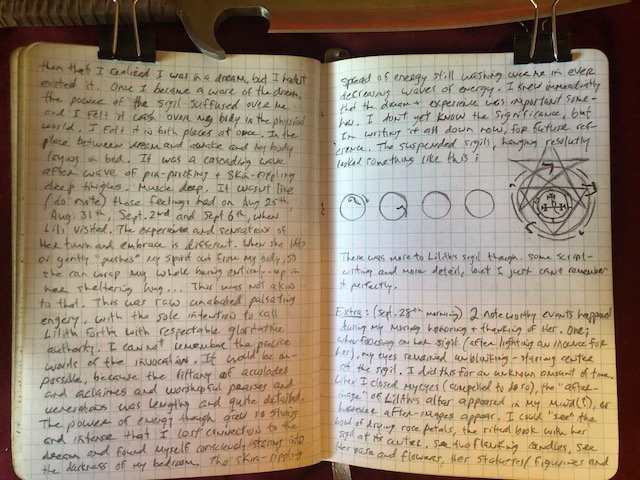 then that I realized I was in a dream, but I hadn't
exited it. Once I became aware of the dream,
the power of the sigil suffused over me
and I felt it wash over my body in the physical
world. I felt it in both places at once. In the
place between dream and awake and my body
laying in bed. It was a cascading wave
after wave of pin-pricking & skin-rippling
deep tingles. Muscle deep. It wasn't like
(do note) those feelings had on Aug 25th,
Aug. 31th, Sept. 2nd and Sept 6th, when
Lili visited. The experience and sensations of
Her touch and embrace is different. When she lifts
or gently "pushes" my spirit out from my body, so
she can wrap my whole being entirely up in
her sheltering hug... This was not akin
to that. This was raw unabated pulsating
engery, with the sole intention to call
Lilith forth with respectable glorifative
authority. I cannot remember the precise
words of the invocations. It would be im-
possible, because the littany of accolades
and aclaimes and worshipful praises and
venerations was lengthy and quite detailed.
The power of energy though grew so strong
and intense that I lost connection to the
dream and found myself consciously staring into
the darkness of my bedroom. The skin-rippling
spread of energy still washing over me in ever
decreasing waves of energy. I knew immediately
that the dream & experience was important some-
how. I don't yet know the significance, but
I'm writing it all down now, for future ref-
erence. The suspended sigils, hanging resolutly
looked something like this:
There was more to Lilith's sigil though. some script-
writing and more details, but I just can't remember
it perfectly.
Extra: (Sept. 28th morning) 2 noteworthy events happened
during my morning honoring & thanking of Her. One;
while focusing on her sigil (after lighting an incense for
her), my eyes remained unblinking - staring center
at the sigil. I did this for an unknown amount of time.
When I closed my eyes (compelled to do so), the "after-
image" of Lilith's altar appeared in my mind(?), or
however after-images appear. I could "see" the
bowl of drying rose petals, the ritual book with her
sigil at its center. see two flanking candles, see
her vase and flowers, Her statuetes/figurines and